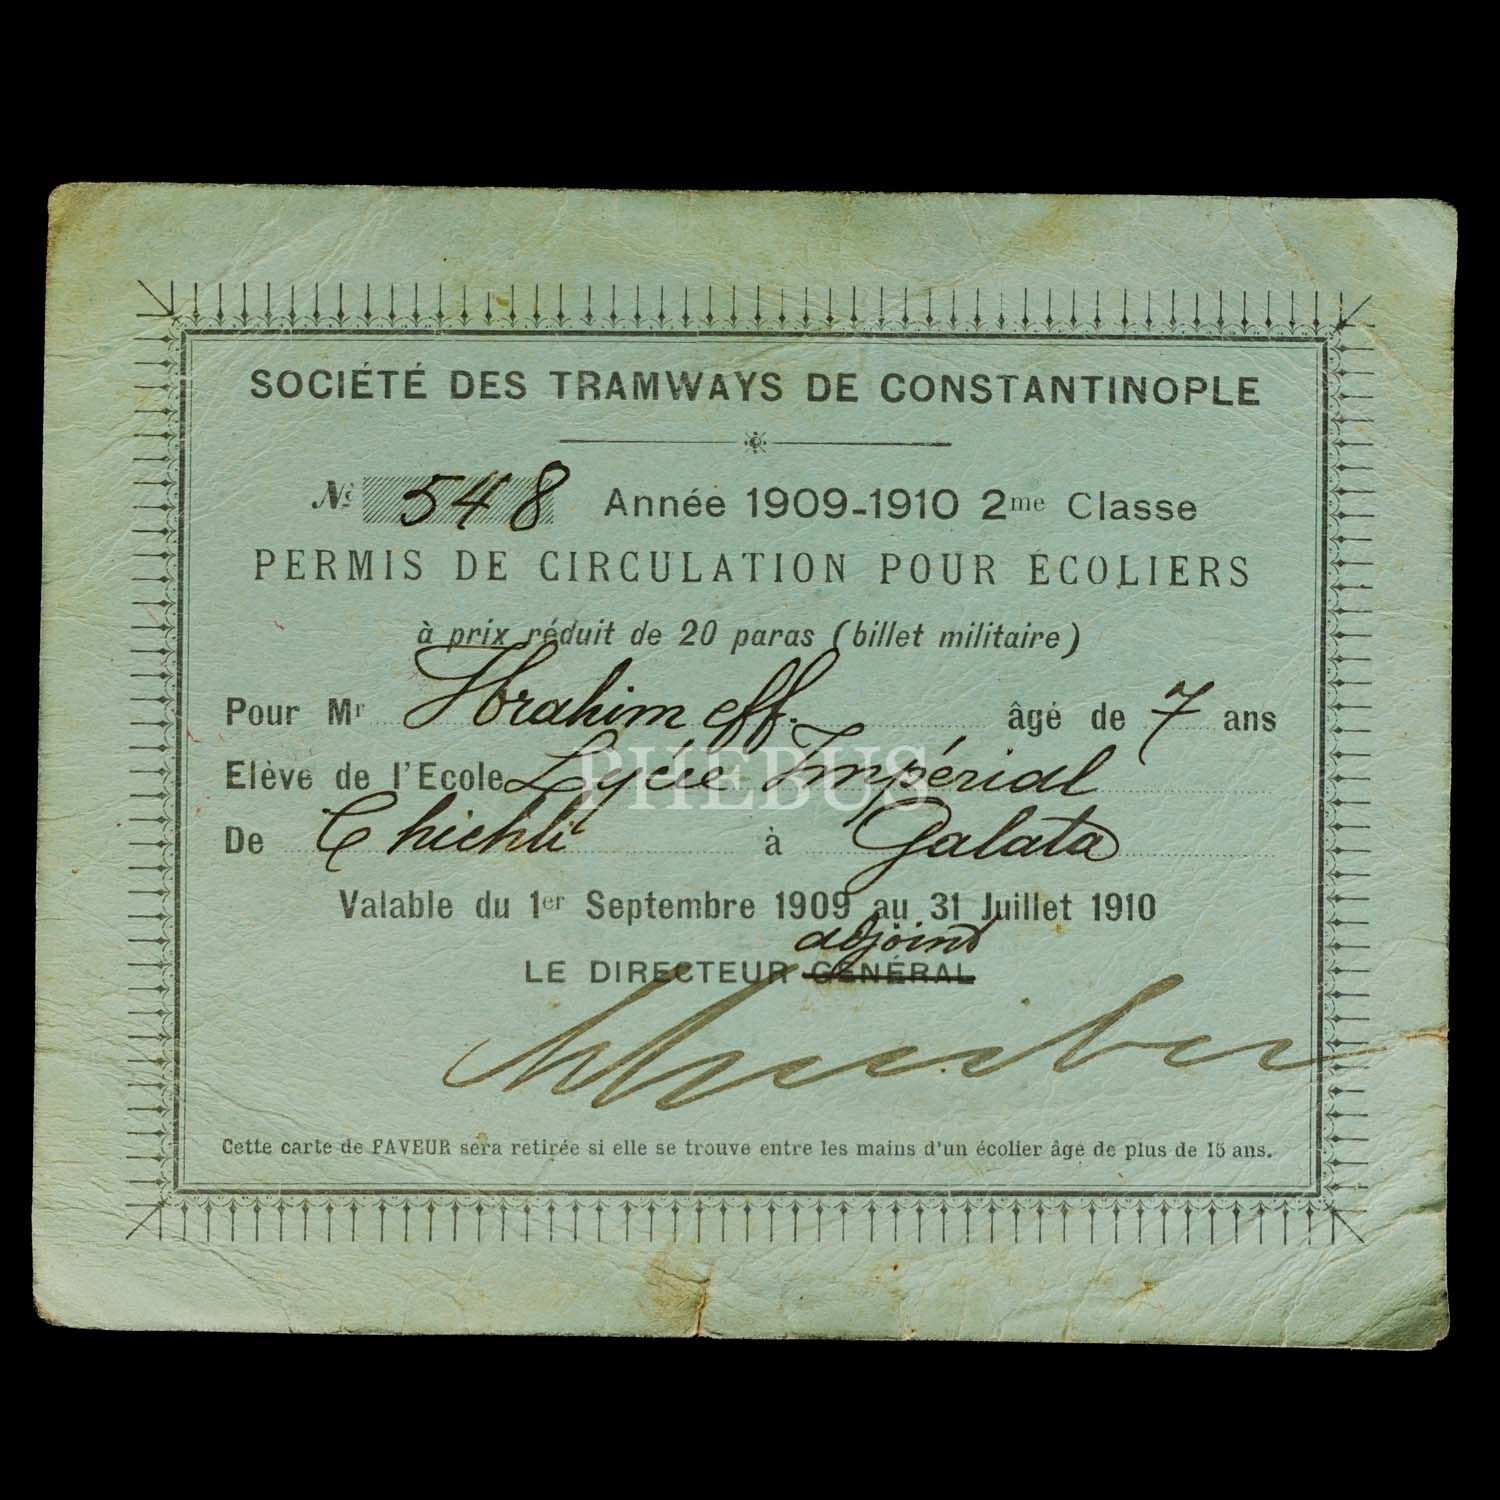 SOCIÉTÉ DES TRAMWAYS DE CONSTANTINOPLE
No 548 Année 1909-1910 2me Classe
PERMIS DE CIRCULATION POUR ÉCOLIERS
à prix réduit de 20 paras (billet militaire)
Pour Mr Ibrahim eff. âgé de 7 ans
Elève de l'Ecole Lycée Impérial
PHEBUS
De Chichli à Galata
Valable du 1er Septembre 1909 au 31 Juillet 1910
adjoint
LE DIRECTEUR GÉNÉRAL
Cette carte de FAVEUR sera retirée si elle se trouve entre les mains d'un écolier âgé de plus de 15 ans.